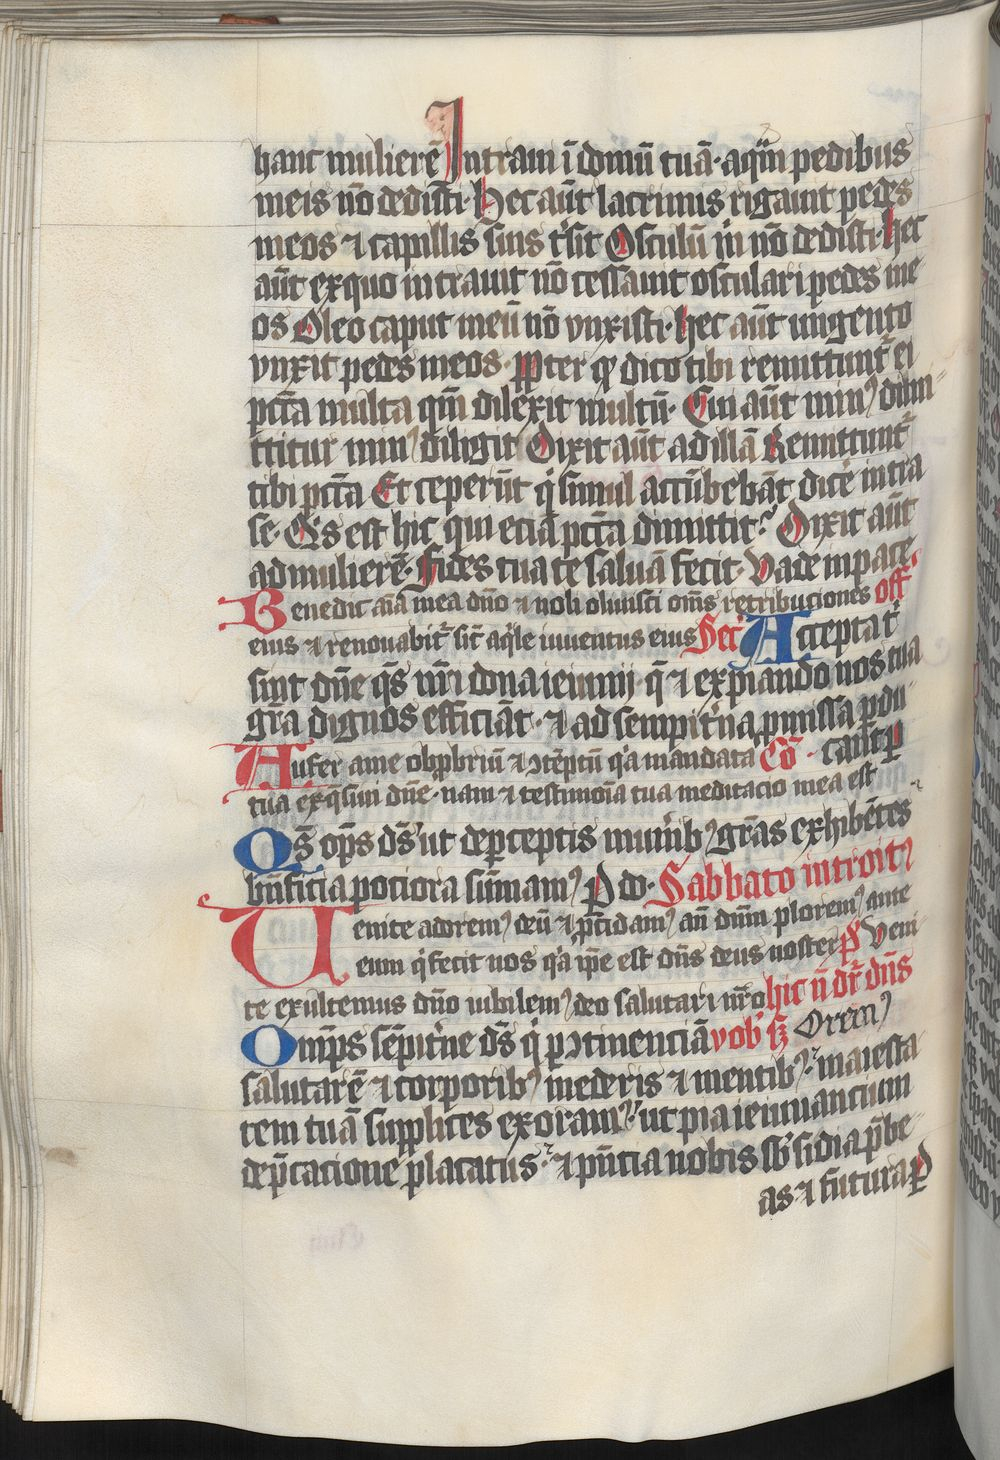 hanc mulierē Intraui ī domū tuā · aquā pedibus
meis nō dedisti · Hec aūt lacrimis rigauit pedes
meos ⁊ capillis suis t̕sit Osculū m̄ nō dedisti · hec
aūt exquo intrauit nō cessauit osculari pedes me
os Oleo caput meū nō vnxisti · hec aūt ungento
vnxit pedes meos · ꝓpter qđ dico tibi remittunt᷑ ei
pctā multa qm̄ dilexit multū · Cui aūt minꝰ dimi
ttitur minꝰ diligit Dixit aūt ad illā Remittunt᷑
tibi pctā Et ceperūt qͥ simul accūbebāt dicē intra
se · Qis est hic qui eciā pctā dimittit · Dixit aūt
ad mulierē · Fides tua te saluā fecit · Vade in pace
Benedic aīa mea dn̄o ⁊ noli obliuisci om̄s retribuciones off
eius ⁊ renouabit᷑ sic̄ aqͥle iuuentus eius Secͬ Accepta t̕
sint dn̄e qs̄ nr̄i dona ieiunij · q̄ ⁊ expiando nos tua
gr̄a dignos efficiāt · ⁊ ad sempit̕na ꝓmissa ꝑdu
Aufer a me obꝓbriū ⁊ ↄtēptū qͥa mandata Cō · cant ꝑ
tua exqͥsiui dn̄e · nam ⁊ testimoīa tua meditacio mea est
Qs̄ op̄s ds̄ ut de ꝑceptis munībꝰ gr̄as exhibētes
bn̄ficia pociora sumamꝰ ꝑ do · Sabbato introitꝰ
Uenite adoremꝰ deū ⁊ ꝓcidamꝰ an̄ dn̄m ploremꝰ ante
eum qͥ fecit nos qͥa ip̄e est dn̄s deus noster p̄s Veni
te exultemus dn̄o iubilemꝰ deo salutari nr̄o hic n̄ dr̄ dn̄s
Omp̄s sēpit̕ne ds̄ qͥ ꝑ ↄtinenciā vob̕ sꝫ Oremꝰ
salutarē ⁊ corporibꝰ mederis ⁊ mentibꝰ · maiesta
tem tuā supplices exoramꝰ · ut pia ieiunancium
dep̄catione placatus · ⁊ pn̄cia nobis sb̄sidia p̄be
as ⁊ futura ꝑ